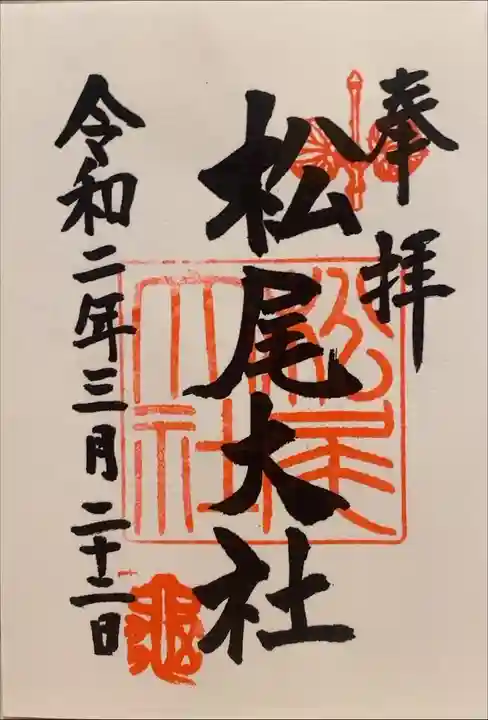 奉拝
松尾大社
松尾大社
令和二年三月二十二日